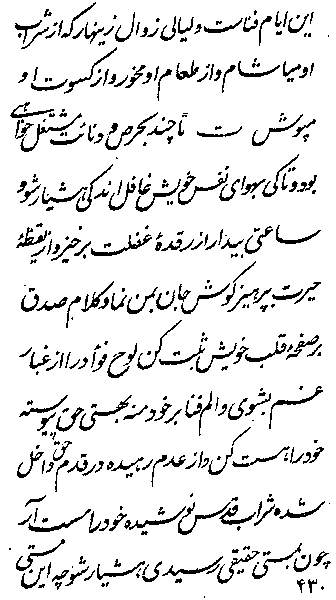 این ایام فناست و لیالی زوال زینهار که از شراب
او میاشام و از طعام او مخور و از کسوت او
مپوش تا چند بحرص و دنائت مشتغل خواهی
بود و تا کی بهوای نفس خویش غافل اندکی هشیار شو و
ساعتی بیدار از رقدهٔ غفلت برخیز و از یقظهٔ
حیرت بپرهیز گوش جان بمن نما و کلام صدق
بر صفحهٔ قلب خویش ثبت کن لوح فؤاد را از غبار
غم بشوی و الم فنا بر خود منه بهستی حق پیوسته
خود را هست کن و از عدم رهیده در قدم حق داخل
شده شراب قدس نوشیده خود را مست آر
چون بمستی حقیقی رسیدی هشیار شو چه این مستی
۴۳۰